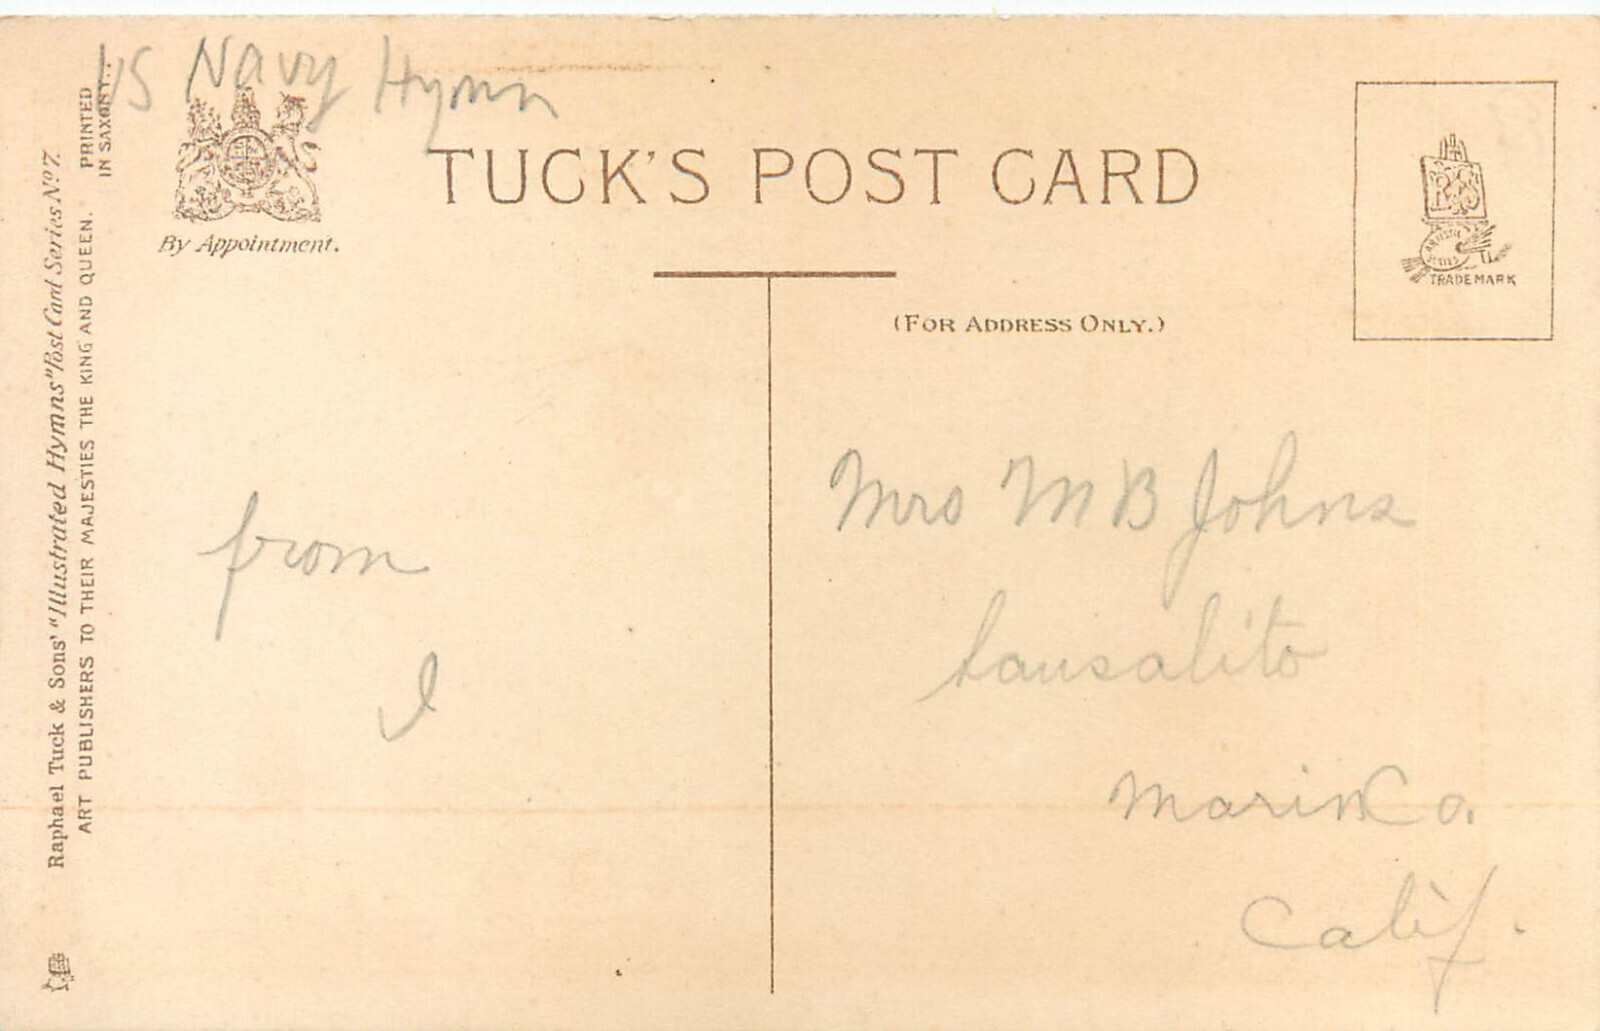 US Navy Hymn
PRINTED
IN SAXONY.
TUCK'S POST CARD
By Appointment.
(FOR ADDRESS ONLY.)
R S
ARTISTIC
SERIES
TRADE MARK
Raphael Tuck & Sons' "Illustrated Hymns" Post Card Series No. 7.
ART PUBLISHERS TO THEIR MAJESTIES THE KING AND QUEEN.
from
I
Mrs M B Johns
Sausalito
Marin Co.
Calif.